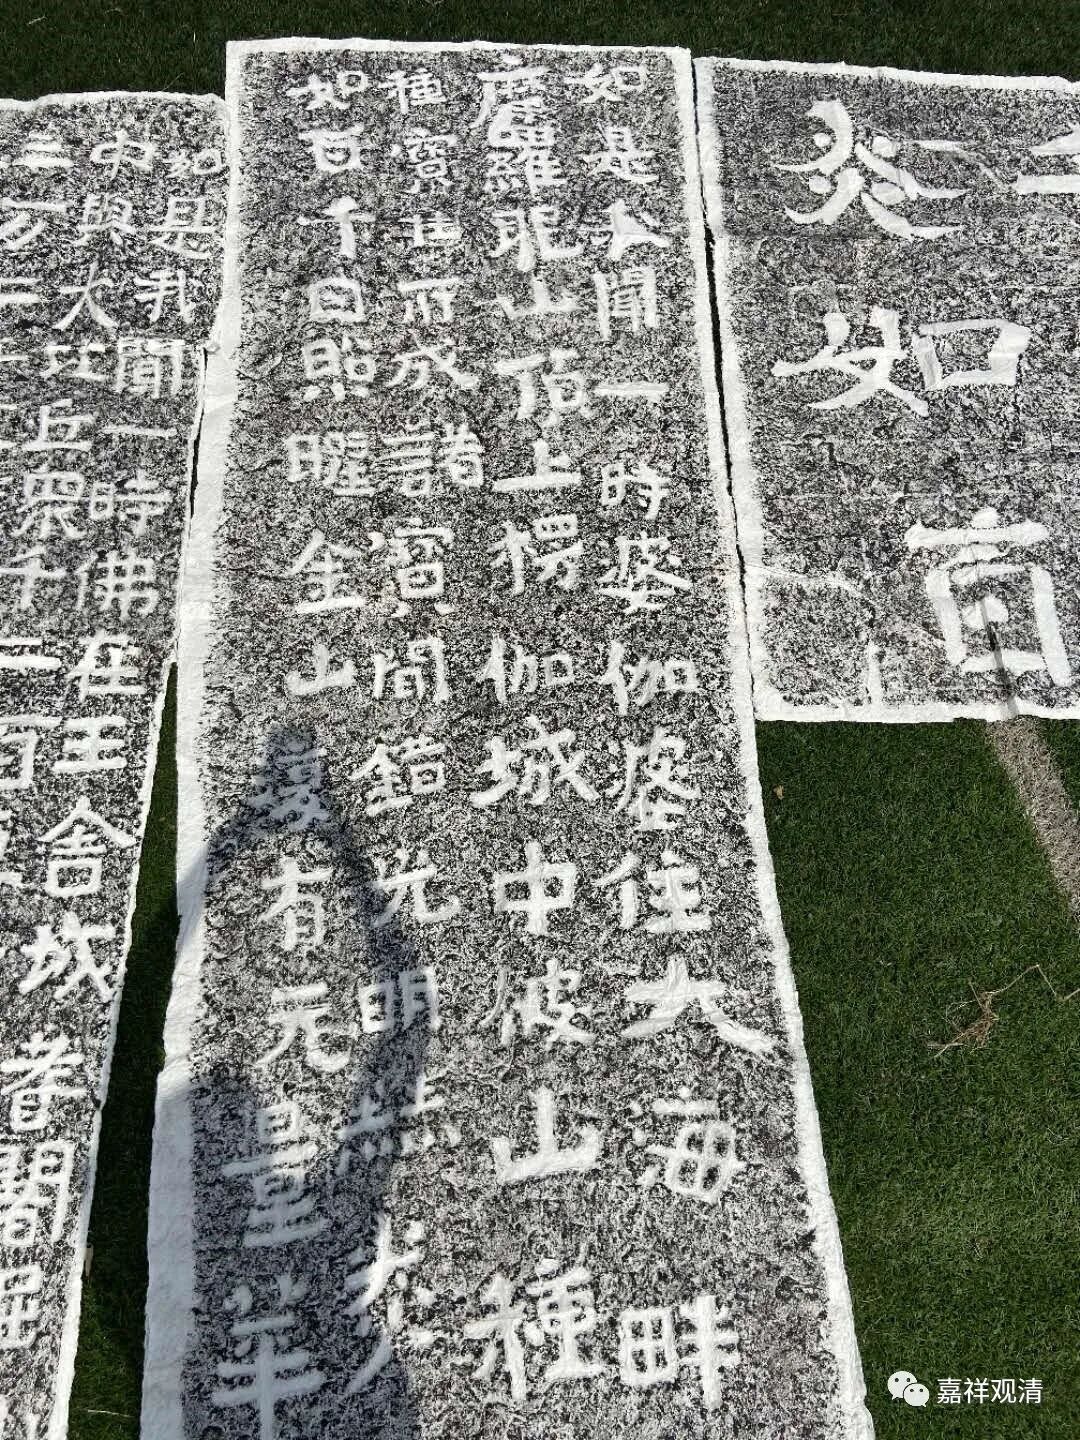 炎如百
如是我聞一時婆伽婆住大海畔
摩羅耶山頂上楞伽城中彼山種
種寶成諸寶間錯光明赫炎
如百千日照曜金山復有无量華
如是我聞一時佛在王舍城耆闍崛
中與大比丘衆千二百
三万二
嘉祥观清